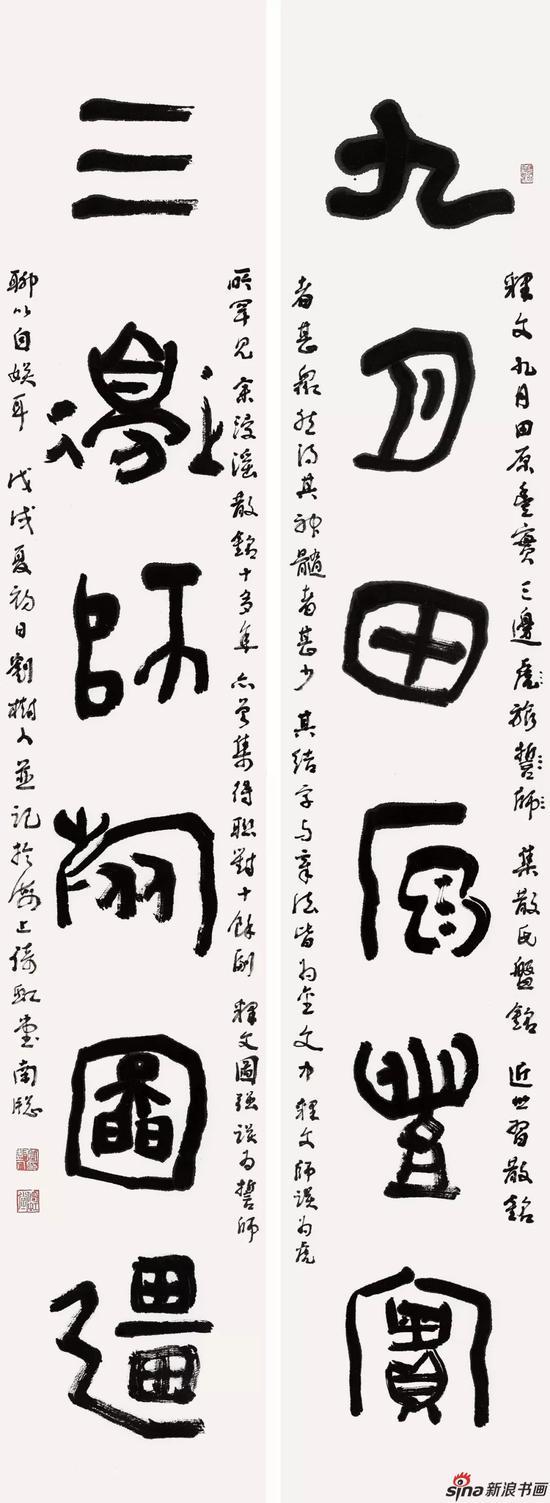 九月田原豐實
釋文 九月田原豐實 三邊虎旅誓師 集散氏盤銘 近世習散銘
者甚眾然得其神髓者甚少 其結字与章法皆为金文中 釋文師誤为虎
三邊師旅圖彊
所罕見 余浸淫散銘十多年 亦曾集得聯對十餘副 釋文圖強誤为誓師
聊以自娛耳 戊戌夏初日劉樹人並記於海上倚虹堂南牕
sina新浪书画